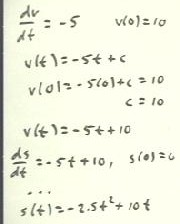 dv/dt = -5 v(0)=10
v(t)=-5t+c
v(0)=-5(0)+c=10
c=10
v(t)=-5t+10
ds/dt=-5t+10, s(0)=0
...
s(t)=-2.5t²+10t